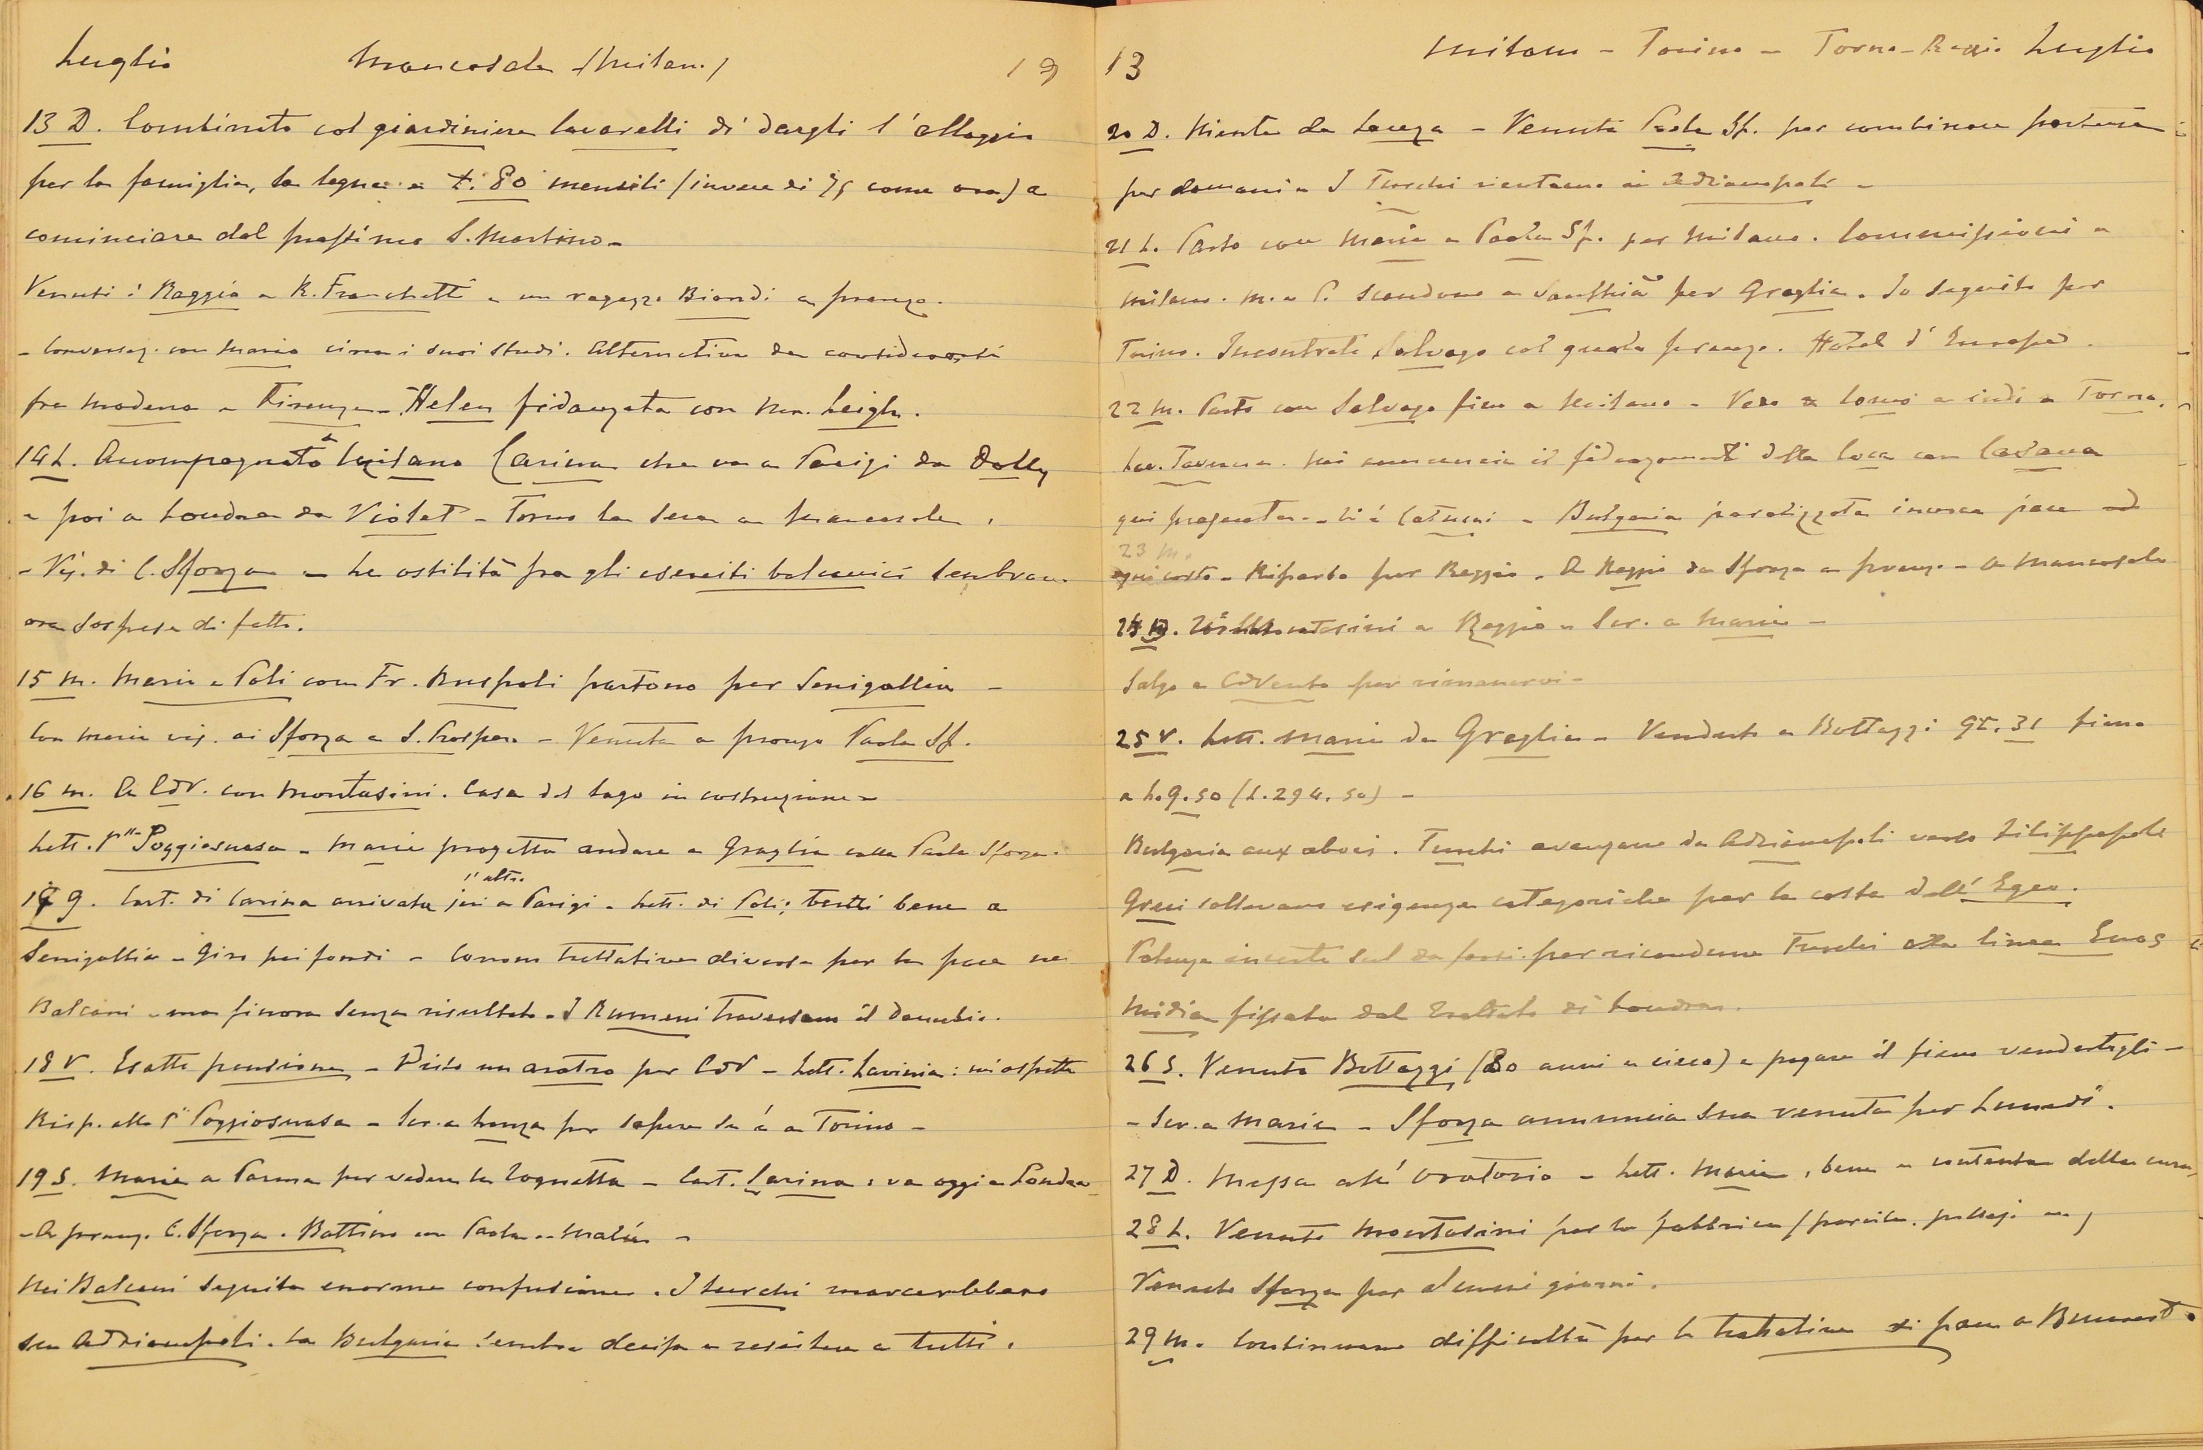 Luglio Mancasale (Milano) 19
13 D. Combinato col giardiniere Cavarelli di dargli l'alloggio
per la famiglia, la legna e £. 80 mensili (invece di 75 come ora) a
cominciare dal prossimo S. Martino -
Venuti i Raggio e R. Franchetti e un ragazzo Biondi a pranzo.
- Conversaz. con Maria circa i suoi studi. Alternativa da considerarsi
fra Modena e Firenze - Helen fidanzata con Mr. Leigh.
14 L. Accompagnata a Milano Carina che va a Parigi da Dolly
e poi a Londra da Violet - Torno la sera a Mancasale.
- Vis. di C. Sforza - Le ostilità fra gli eserciti balcanici sembrano
ora sospese di fatto.
15 M. Maria e Poli con Fr. Ruspoli partono per Senigallia -
Con Maria vis. ai Sforza a S. Prospero - Venuta a pranzo Paola Sf.
16 M. A CdV. con Montasini. Casa del lago in costruzione -
Lett. Pssa Poggiosuasa - Maria progetta andare a Graglia colla Paola Sforza.
17 G. Cart. di Carina arrivata l'altro jeri a Parigi - Lett. di Poli; tutti bene a
Senigallia - Giro pei fondi - Corrono trattative diverse per la pace nei
Balcani - ma finora senza risultato - I Rumeni traversano il Danubio.
18 V. Esatta pensione - Visto un aratro per CdV - Lett. Lavinia: mi aspetta
Risp. alla Pssa Poggiosuasa - Scr. a Lanza per sapere se è a Torino -
19 S. Maria a Parma per vedere la Cognetta - Cart. Carina: va oggi a Londra -
- A pranzo C. Sforza. Battino con Paola e Malù -
Nei Balcani seguita enorme confusione. I turchi marcerebbero
su Adrianopoli. La Bulgaria sembra decisa a resistere a tutti.
13 Milano - Torino - Torno - Reggio Luglio
20 D. Niente da Lanza - Venuta Paola Sf. per combinare partenza
per domani - I Turchi rientrano in Adrianopoli -
21 L. Parto con Maria e Paola Sf. per Milano. Commissioni a
Milano. M. e P. scendono a Santhià per Graglia. Io seguito per
Torino. Incontrato Salvago col quale pranzo. Hotel d'Europe.
22 M. Parto con Salvago fino a Milano - Vado a Como e indi a Torno.
Lav. Taverna. Mi annuncia il fidanzamento della Luca con Casana
qui presente - Bulgaria paralizzata invoca pace ad
23 M.
ogni costo - Riparto per Reggio - A Reggio da Sforza a pranzo - a Mancasale
24 Montasini a Reggio - Scr. a Maria -
Salgo a CdVento per rimanervi -
25 V. Lett. Maria da Graglia - Venduto a Bottazzi Qt. 31 fieno
a L. 9.50 (L. 294.50) -
Bulgaria aux abois. Turchi avanzano da Adrianopoli verso Filippopoli
Greci sollevano esigenze categoriche per la costa dell'Egeo.
Potenze incerte sul da farsi per ricondurre Turchi alla linea Enos
Midia fissata dal Trattato di Londra.
26 S. Venuto Bottazzi (80 anni e cieco) a pagare il fieno vendutogli -
- Scr. a Maria - Sforza annuncia sua venuta per Lunedì.
27 D. Messa all'Oratorio - Lett. Maria, bene e contenta della cura,
28 L. Venuto Montasini per la fabbrica
Venuto Sforza per alcuni giorni.
29 M. Continuano difficoltà per le trattative di pace a Bucarest.